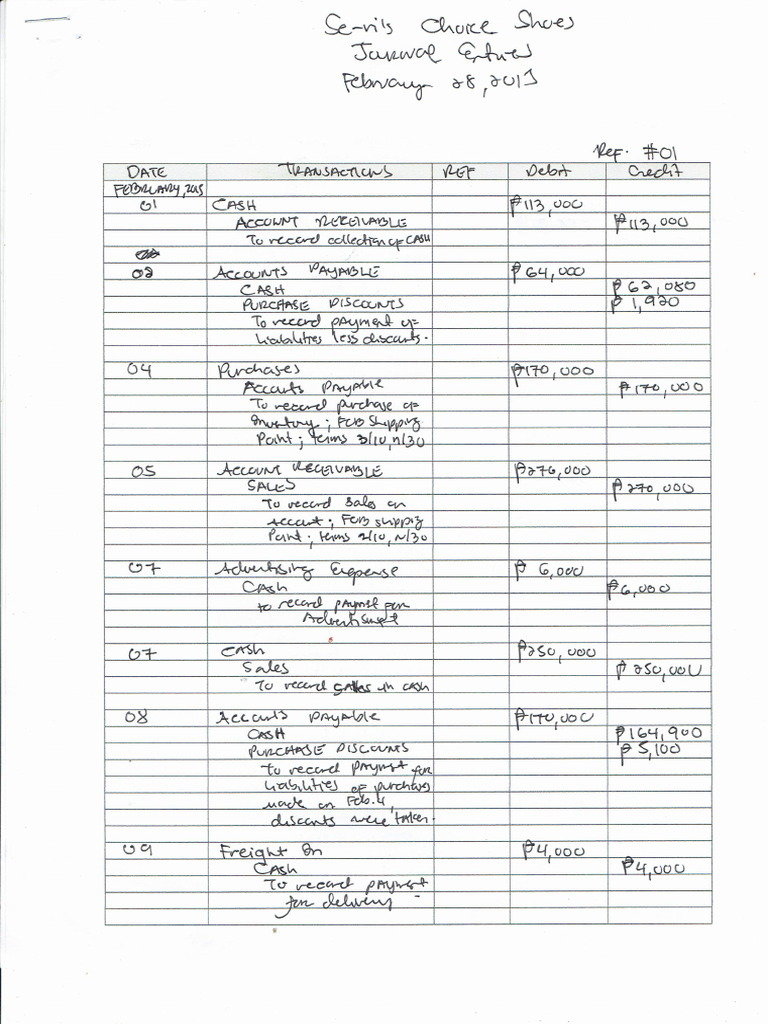 Se-ri's Choice Shoes
Journal Entries
February 28, 2015
Ref. #01
DATE TRANSACTIONS REF Debit Credit
FEBRUARY, 2015
01 CASH ₱113,000
ACCOUNT RECEIVABLE ₱113,000
To record collection of CASH
02 ACCOUNTS PAYABLE ₱64,000
CASH ₱62,080
PURCHASE DISCOUNTS ₱1,920
To record payment of
liabilities less discounts.
04 Purchases ₱170,000
Accounts PAYABLE ₱170,000
To record purchase of
Inventory; FOB Shipping
Point; terms 3/10, n/30
05 ACCOUNT RECEIVABLE ₱270,000
SALES ₱270,000
To record Sales on
account; FOB shipping
Point; terms 2/10, n/30
07 Advertising Expense ₱6,000
Cash ₱6,000
to record payment for
Advertisement
07 Cash ₱250,000
Sales ₱250,000
To record sales in cash
08 Accounts Payable ₱170,000
CASH ₱164,900
PURCHASE DISCOUNTS ₱5,100
to record payment for
liabilities of purchases
made on Feb. 4,
discounts were taken.
09 Freight In ₱4,000
Cash ₱4,000
To record payment
for delivery